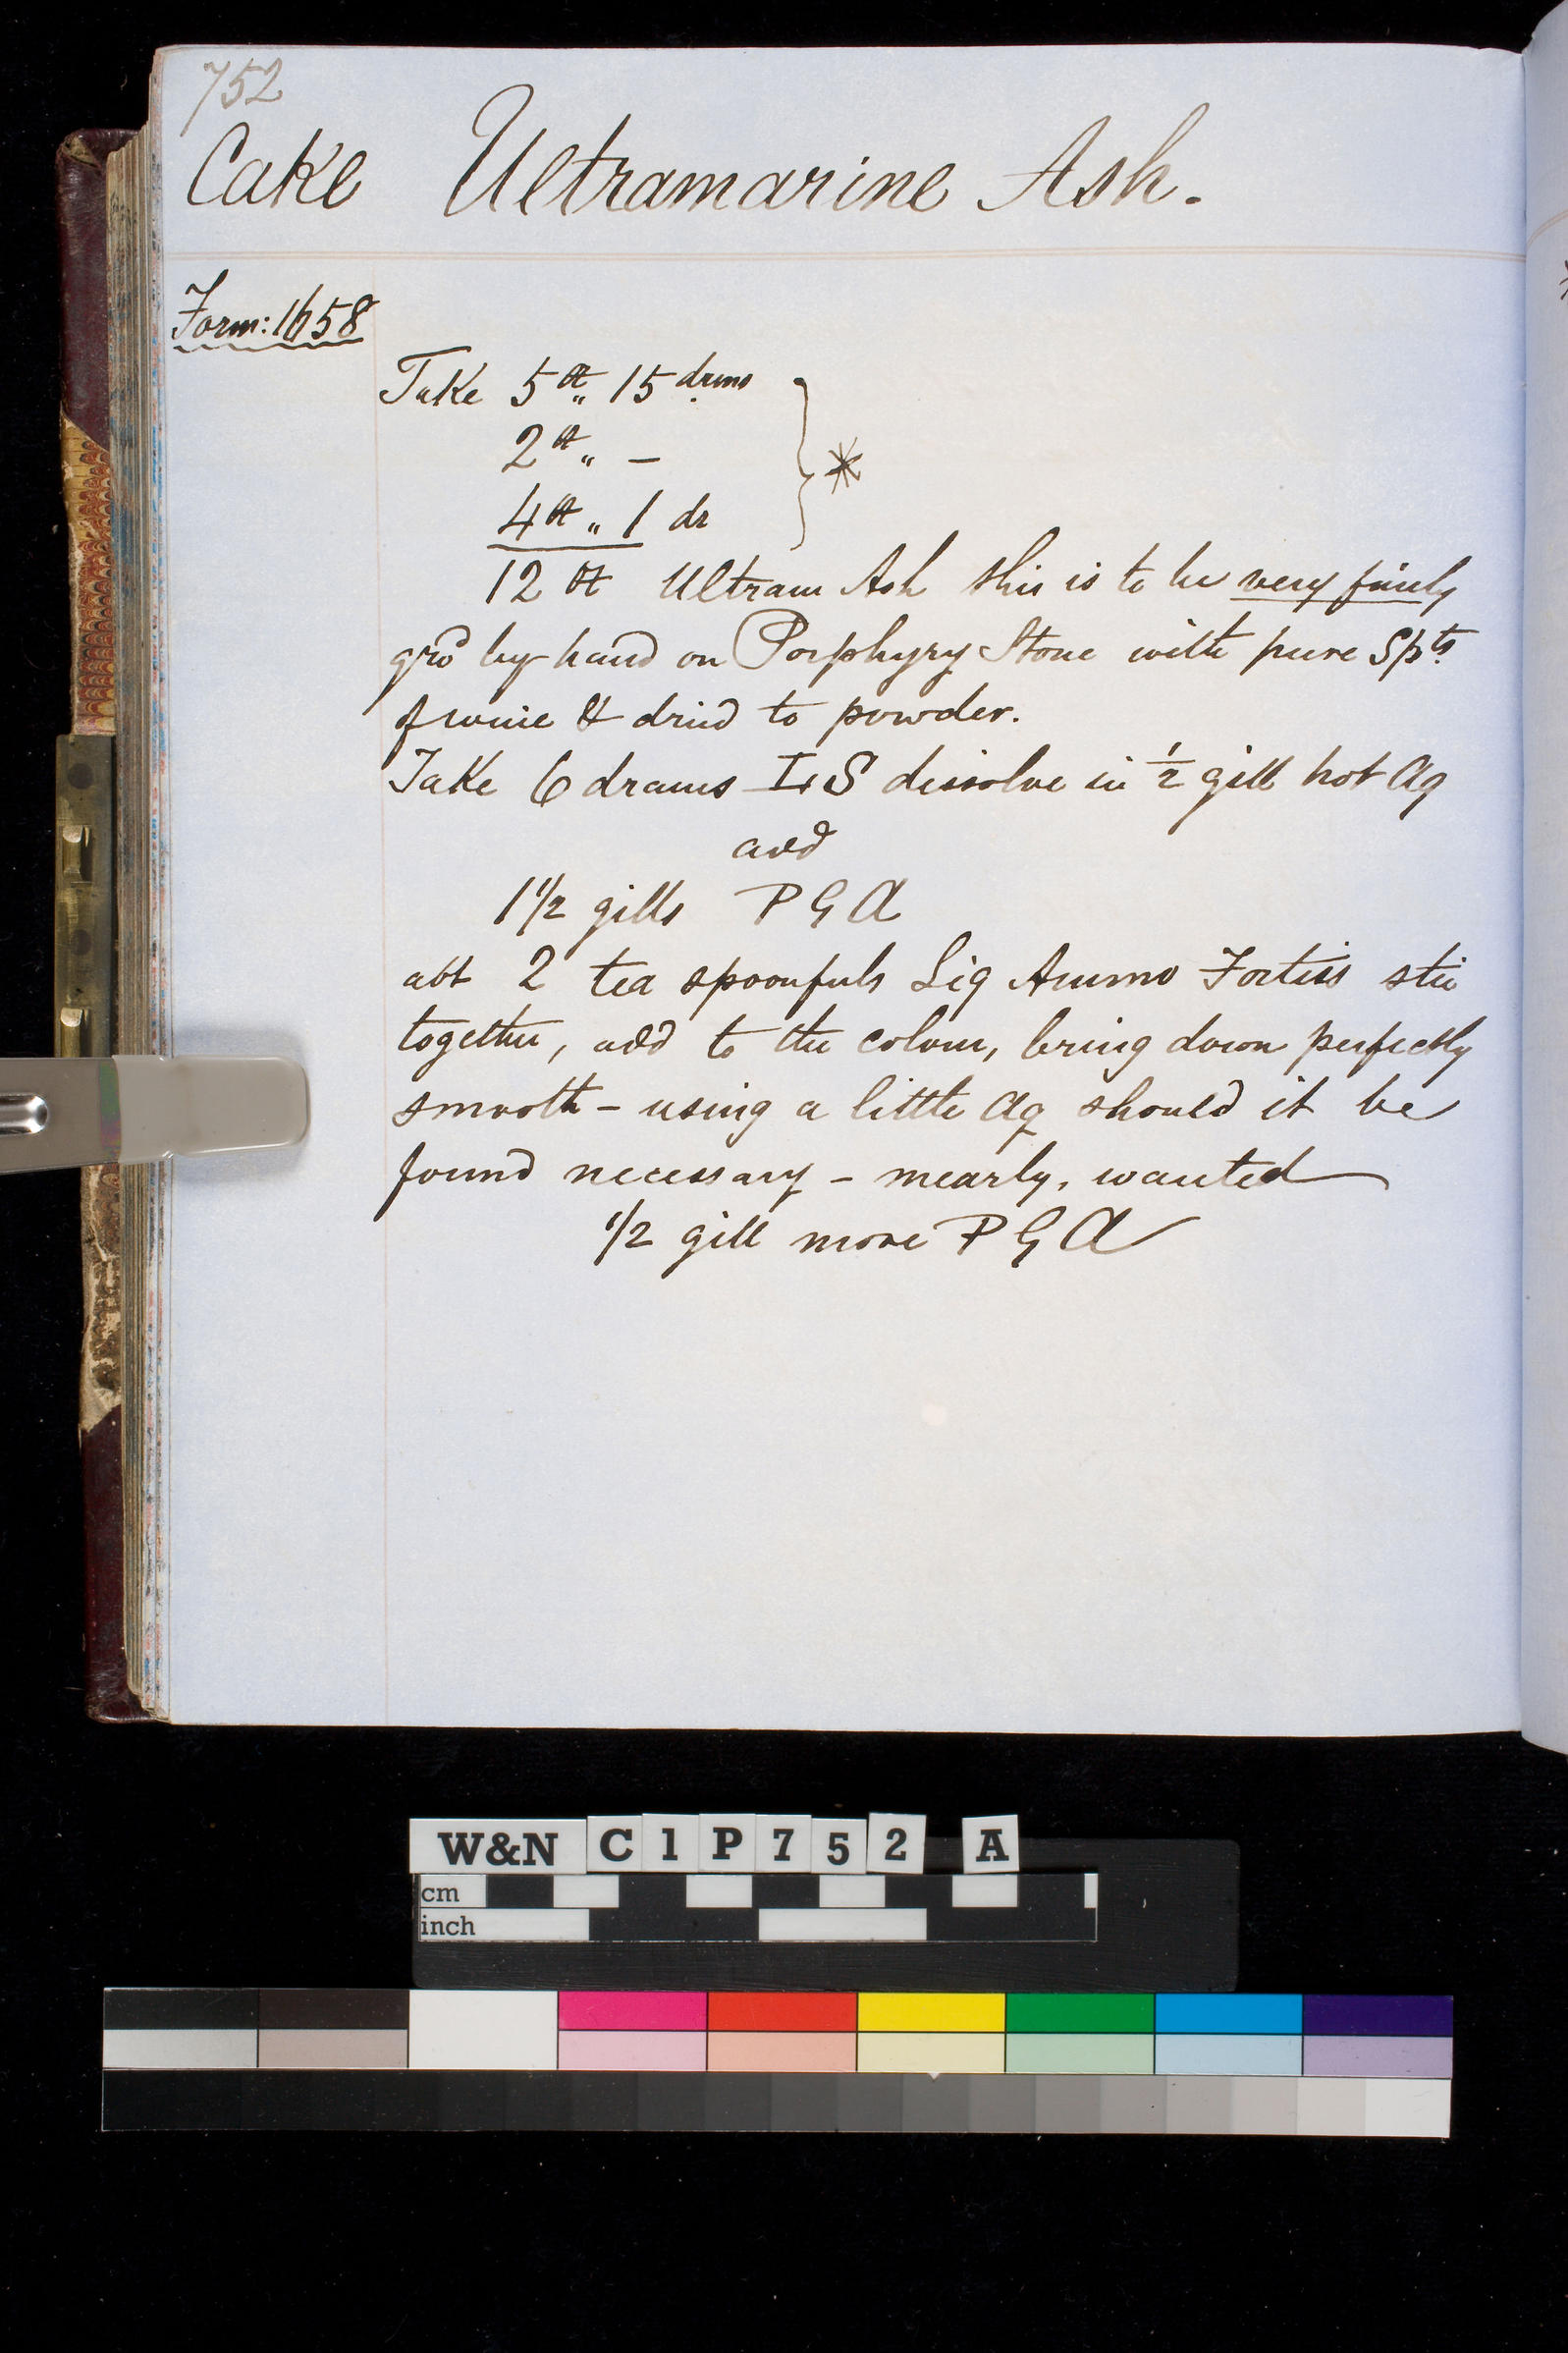 752
Cake Ultramarine Ash.
Form: 1658
Take 5 ℔ „ 15 drms
2 ℔ „ –
4 ℔ „ 1 dr
*
12 ℔ Ultram Ash this is to be very finely
grd by hand on Porphyry Stone with pure Spts
of wine & dried to powder.
Take 6 drams I,S dissolve in 1/2 gill hot Aq
add
1 1/2 gills P G A
abt 2 tea spoonfuls Liq Ammo Fortiss stir
together, add to the colour, bring down perfectly
smooth – using a little Aq should it be
found necessary – mearly, wanted
1/2 gill more P G A
W&N C1P752 A
cm
inch